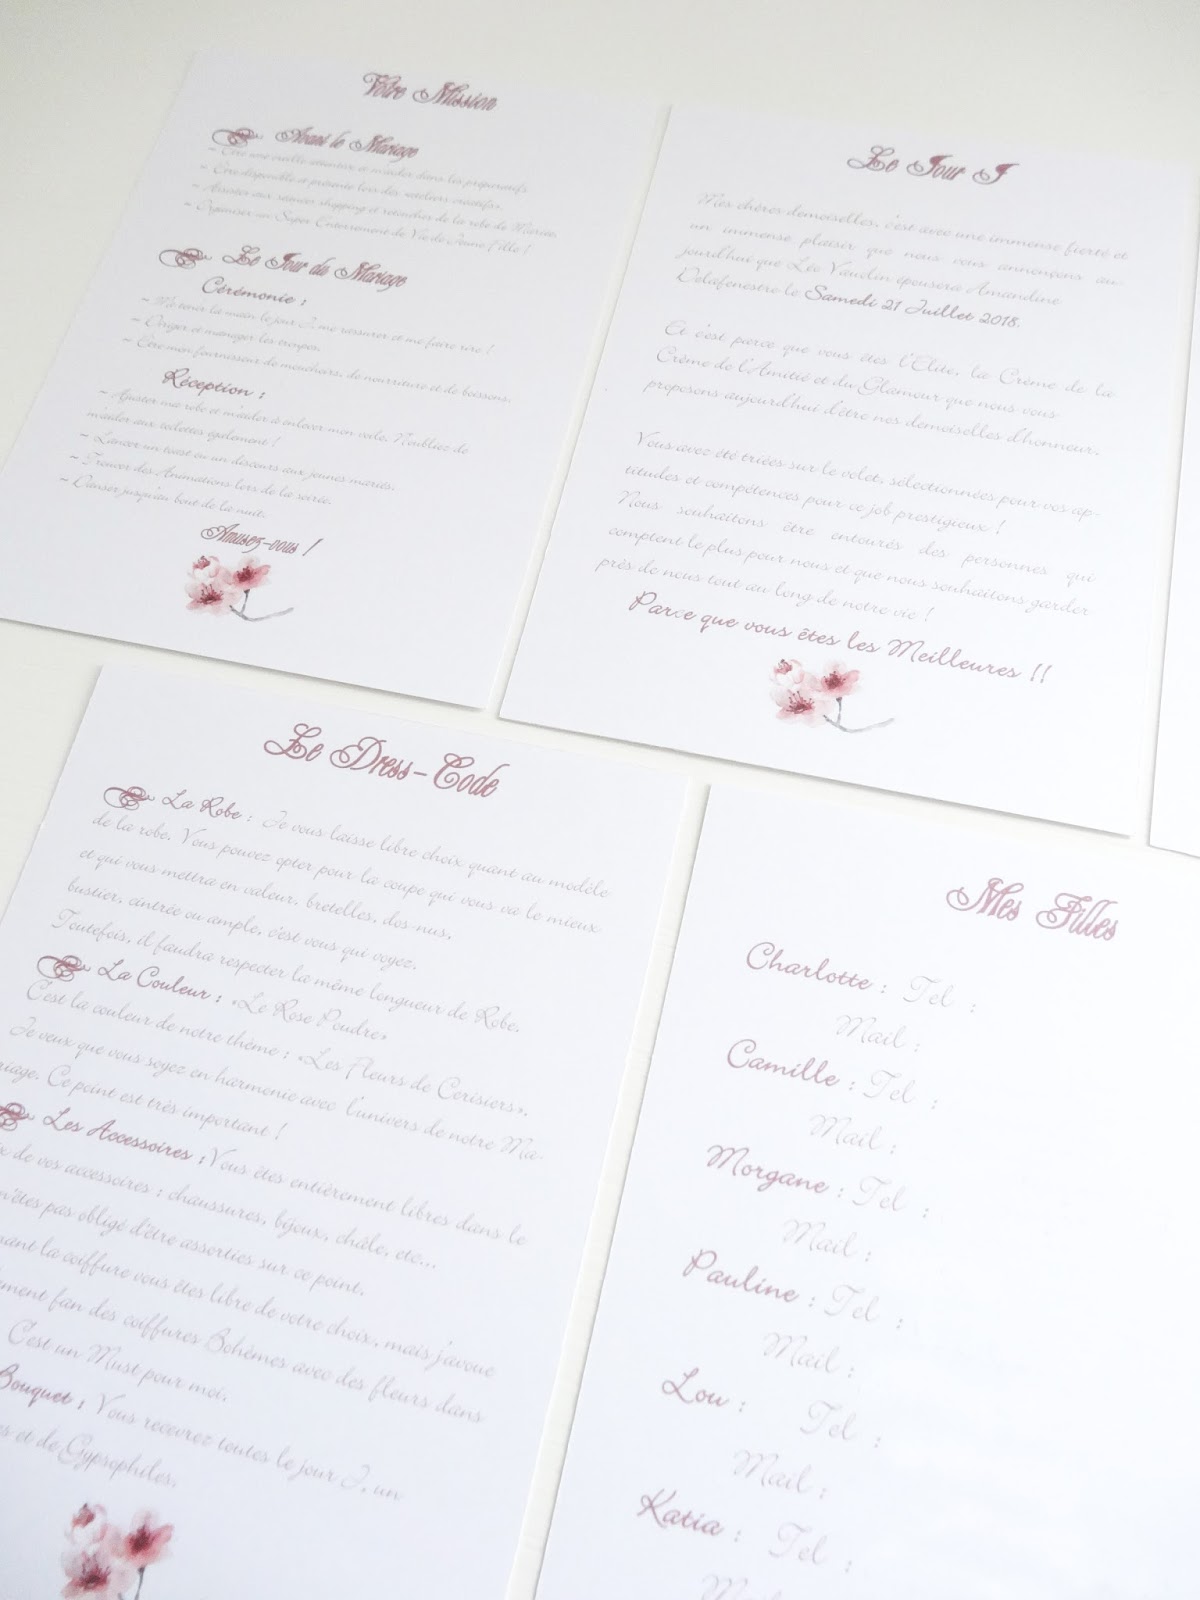 Votre Mission
Avant le Mariage
~ Être une oreille attentive et m'aider dans les préparatifs
~ Être disponible et présente lors des ateliers créatifs.
~ Assister aux séances shopping et retouches de la robe de Mariée.
~ Organiser un Super Enterrement de Vie de Jeune Fille !
Le Jour du Mariage
Cérémonie :
~ Me tenir la main le jour J, me rassurer et me faire rire !
~ Diriger et manager les troupes.
~ Être mon fournisseur de mouchoirs, de nourriture et de boissons.
Réception :
~ Ajuster ma robe et m'aider à enlever mon voile. N'oubliez de
m'aider aux toilettes également !
~ Lancer un toast ou un discours aux jeunes mariés.
~ Trouver des Animations lors de la soirée.
~ Danser jusqu'au bout de la nuit.
Amusez-vous !
Le Jour J
Mes chères demoiselles, c'est avec une immense fierté et
un immense plaisir que nous vous annonçons au-
jourd'hui que Léo Vaudin épousera Amandine
Delafenestre le Samedi 21 Juillet 2018.
Et c'est parce que vous êtes l'Elite, la Crème de la
Crème de l'Amitié et du Glamour que nous vous
proposons aujourd'hui d'être nos demoiselles d'honneur.
Vous avez été triées sur le volet, sélectionnées pour vos ap-
titudes et compétences pour ce job prestigieux !
Nous souhaitons être entourés des personnes qui
comptent le plus pour nous et que nous souhaitons garder
près de nous tout au long de notre vie !
Parce que vous êtes les Meilleures !!
Le Dress-Code
La Robe : Je vous laisse libre choix quant au modèle
de la robe. Vous pouvez opter pour la coupe qui vous va le mieux
et qui vous mettra en valeur, bretelles, dos-nus,
bustier, cintrée ou ample, c'est vous qui voyez.
Toutefois, il faudra respecter la même longueur de Robe.
La Couleur : «Le Rose Poudre»
C'est la couleur de notre thème : «Les Fleurs de Cerisiers».
Je veux que vous soyez en harmonie avec l'univers de notre Ma-
riage. Ce point est très important !
Les Accessoires : Vous êtes entièrement libres dans le
de vos accessoires : chaussures, bijoux, châle, etc...
n'êtes pas obligé d'être assorties sur ce point.
la coiffure vous êtes libre de votre choix, mais j'avoue
fan des coiffures Bohèmes avec des fleurs dans
C'est un Must pour moi.
Bouquet : Vous recevrez toutes le jour J, un
et de Gypsophiles.
Mes Filles
Charlotte : Tel :
Mail :
Camille : Tel :
Mail :
Morgane : Tel :
Mail :
Pauline : Tel :
Mail :
Lou : Tel :
Mail :
Katia : Tel :
Mail